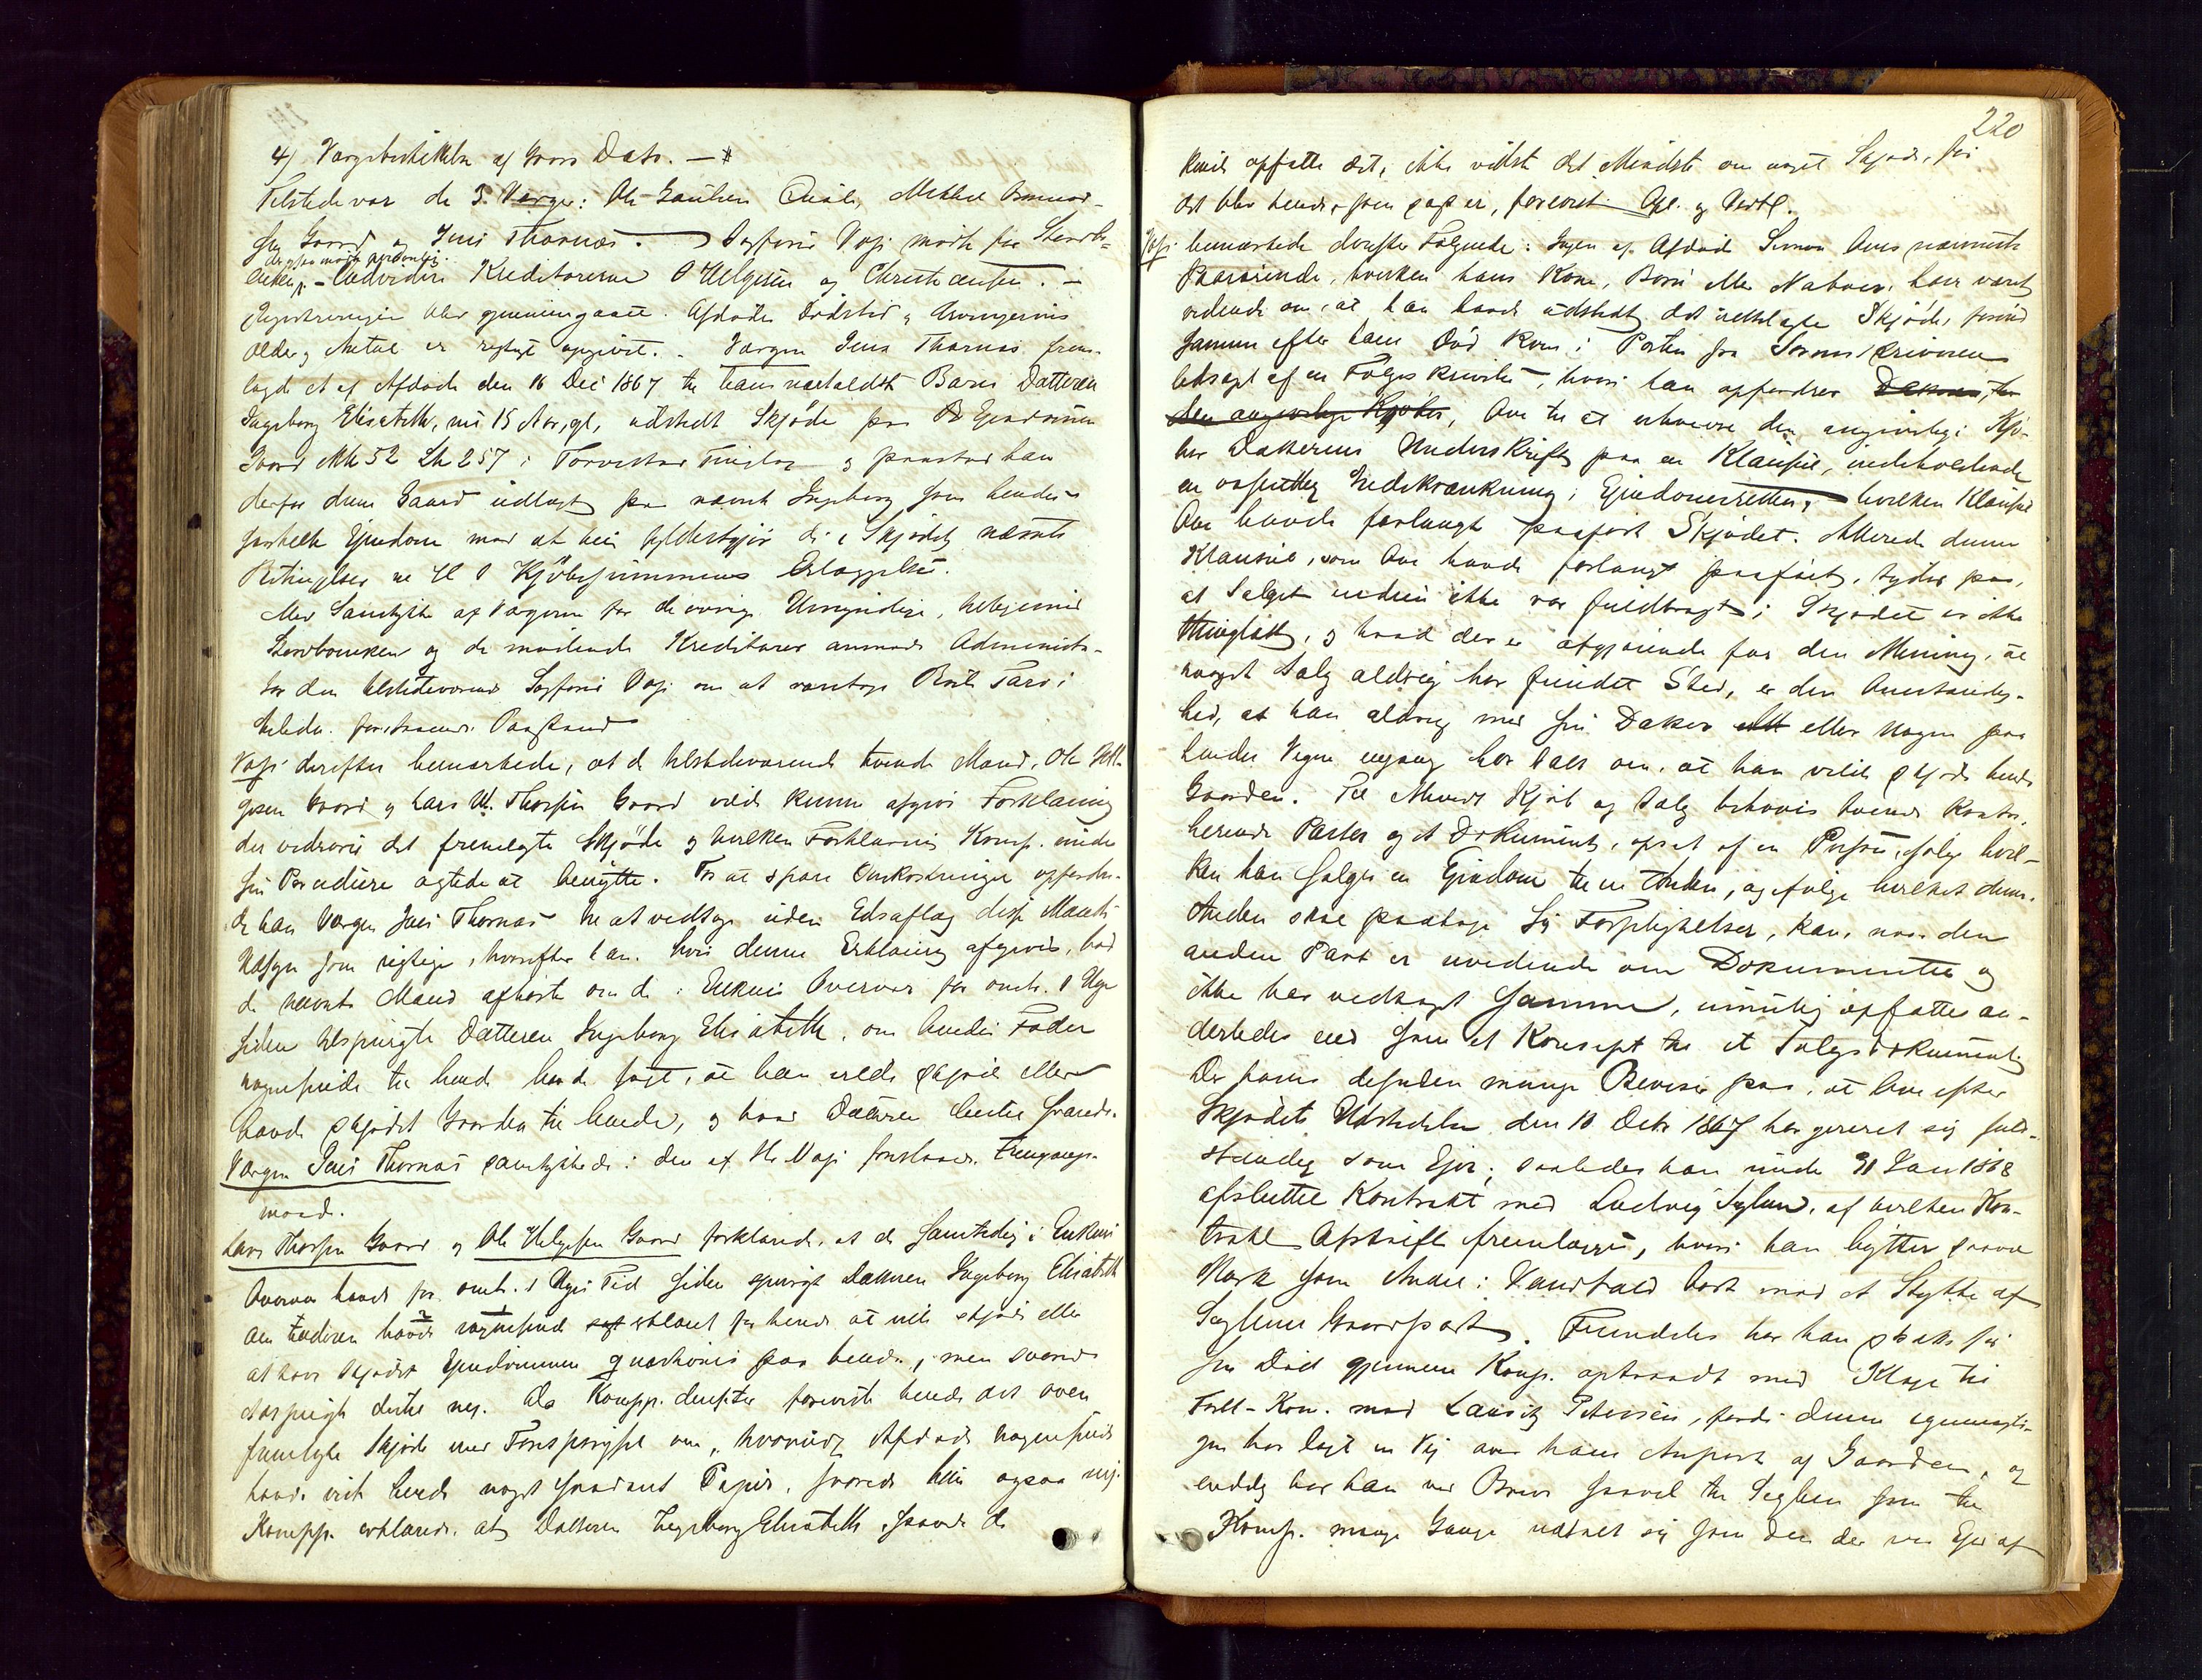 4) Værgebeskikkelse af Gaars Dato. —
Tilstede var de 3 Værger: Ole Gautesen Qvale, Mikkel Asmund-
sen Gaard og Jens Thornæs. — Sagfører Voss mødte for Skands-
der ogsaa mødte personlig.
Enken, - Endvidere Kreditorerne O Helgesen og Christensen. —
Registreringen blev gjennemgaaet. Afdødes Dødstid og Arvingernes
Alder og Antal er rigtigt opgivet. - Værgen Jens Thornæs frem-
lagde et af Afdøde den 16 Dec 1867 til hans næstældste Barn Datteren
Ingeborg Elisabeth, nu 15 Aar gl, udstedt Skjøde paa Ejendommen
Gaard M№ 52 L№ 257 i Torvestad Tinglag og paastod han
derfor denne Gaard udlagt paa nævnte Ingeborg som hendes
særskilte Ejendom mod at hun fyldestgjør de i Skjødet nævnte
Betingelser m H t Kjøbesummens Erlæggelse.
Med Samtykke af Værgerne for de øvrige Umyndige,
Skandsbanken og de mødende Kreditorer anmode Administra-
tor den tilstedeværende Sagfører Voss om at varetage Boets Tarv i
Anledn. foranstaaende Paastand
Voss derefter bemærkede, at de tilstedeværende tvende Mænd, Ole Hel-
gesen Gaard og Lars M. Thorsen Gaard vilde kunne afgive Forklaring
der vedrører det fremlagte Skjøde og hvilken Forklaring Komp. under
sin Procedure agtede at benytte. For at spare Omkostninger opfordre-
de han Værgen Jens Thornæs til at vedtage uden Edsaflæg disse Mænds
Udsagn som rigtige, hvorefter han, hvis denne Erklæring afgives, bad
de nævnte Mænd afhørte om de i Enkens Overvær for omtr. 1 Uge
siden tilspurgte Datteren Ingeborg Elisabeth, om hendes Fader
nogensinde til hende havde sagt, at han vilde skjøde eller
havde skjødet Gaarden til hende, og hvad Datteren hertil svarede.
Værgen Jens Thornæs samtykkede i den af Hr Voss foreslaaede Fremgangs-
maade.
Lars Thorsen Gaard og Ole Helgesen Gaard forklarede, at de samtidig i Enkens
Overvær havde for omtr. 1 Uges Tid siden spurgt Datteren Ingeborg Elisabeth
om Faderen havde nogensinde sagt erklæret for hende at ville skjøde eller
at have skjødet Ejendommen paa hende, men svarede
Adspurgte dertil nej. Da Kompp. derefter foreviste hende det oven
fremlagte Skjøde med Forespørgsel om, hvorvidt Afdøde nogensinde
havde vist hende noget saadant Papir, svarede hun ogsaa nej.
Kompp. erklærede, at Datteren Ingeborg Elisabeth, saavidt de
220
kunde opfatte det, ikke vidste det Mindste om noget Skjøde, før
det blev hende, som sagt er, forevist. Opl. og Vedtl.
Voss bemærkede derefter Følgende: Ingen af Afdøde Simon Aues nærmeste
Paarørende, hverken hans Kone, Børn eller Naboer, har været
vidende om, at han havde udstedt det omhandlede Skjøde, førend
samme efter hans Død kom i Posten fra Sorenskriveren
ledsaget af en Følgeskrivelse, hvori han opfordrer Datteren, den
den angivelige Kjøber, Aue til at erhverve den angivelige Kjø-
ber Datterens Underskrift paa en Klausul, indeholdende
en væsentlig Indskrænkning i Ejendomsretten, hvilken Klausul
Aue havde forlangt paaført Skjødet. Allerede denne
Klausul, som Aue havde forlangt paaført, tyder paa,
at Salget endnu ikke var fuldbragt; Skjødet er ikke
thinglæst, og hvad der er afgjørende for den Mening, at
noget Salg aldrig har fundet Sted, er den Omstændig-
hed, at han aldrig med sin Datter eller Nogen paa
hendes Vegne engang har talt om, at han vilde skjøde hende
Gaarden. Til Afhendt Kjøb og Salg behøves tvende kontra-
herende Parter og et Dokument, opsat af en Person, ifølge hvil-
ken han sælger en Ejendom til en Anden, og ifølge hvilket denne
Anden skal paatage sig Forpligtelser, kan, naar den
anden Part er uvidende om Dokumentet og
ikke har vedtaget samme, umulig opfattes an-
derledes end som et Koncept til et Salgsdokument
Der haves desuden mange Beviser paa, at Aue efter
Skjødets Udstedelse den 16 Decbr 1867 har gereret sig fuld-
stændig som Ejer; saaledes har han under 31 Jan 1868
afsluttet Kontrakt med Ludvig Seglem, af hvilken Kon-
trakt Afskrift fremlægges, hvori han bytter saavel
Mark som Andel i Vandfald bort mod et Stykke af
Seglems Gaardpart. Fremdeles har han strax før
sin Død gjennem Komp. optraadt med Klage til
Forl-Kom. mod Lauritz Petersen, fordi denne egenmægti-
gen har lagt en Vej over hans Anpart af Gaarden, og
endelig har han ved Breve saavel til Seglem som til
Komp. mange Gange udtalt sig som den der var Ejer af